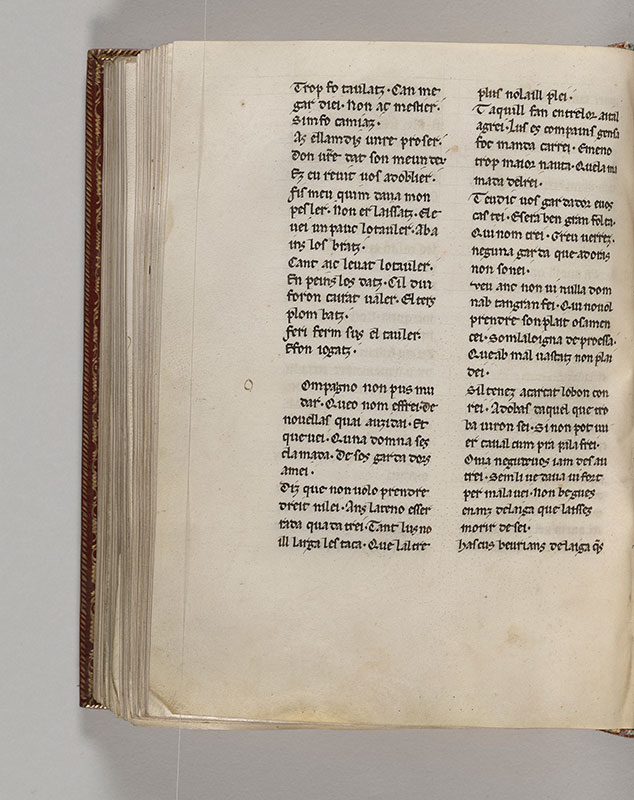 Trop fo taulatz · Can me
gar diei · Non aç mestier ·
Sim fo camiaz ·
Az ellam dis unre proser ·
Don ure dat son menuder
Ez eu revit vos adoblier ·
Fis meu quim dava mon
pesler · Non er laissatz · Ele
vei un pauc lo tauler · Ab a
ins los bratz ·
Cant aic levat lo tauler ·
En peins los datz · Cil dui
foron cairat valer · El ters
plom batz ·
Feri ferm sus el tauler ·
E fon iogatz ·
Ompagno non pus mu
dar · Queo nom effrei · De
novellas quai auzidai · Et
que vei · Quna domna ses
clamada · De ses garda dors
amei ·
Diz que non volo prendre
dreit nilei · Ans la teno esser
rada qua da trei · Tant lus no
ill larga lestaca · Que laltre
plus nolaill plei ·
Taquill fan entrelor aital
agrei · Lus es compains gens
foc manda carrei · E meno
trop maior nauta · Que la mi
mada del rei ·
Teu dic vos gardador e uos
castei · Esera ben gran folia ·
Qui nom crei · Greu verretz
neguna garda que ad oras
non sonei ·
veu anc non vi nulla dom
nab tan gran fei · Qui no vol
prendre son plait o sa mer
cei · Som laloigna de proessa ·
Queab malvastatz non plai
dei ·
Sil tenez a cartat lo bon con
rei · Adobas daquel que tro
ba viron sei · Si non pot avi
er caval compra palafrei ·
Ona negu de vos iam des au
trei · Sem li vedava vi fort
per malavei · Non begues
enanz de laiga que laisses
morir de sei ·
Chascus beurians de laiga qs